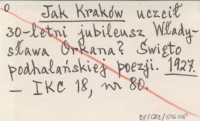 Jak Kraków uczcił
30-letni jubileusz Włady-
sława Orkana? Święto
podhalańskiej poezji. 1927.
– IKC 18, nr 80.